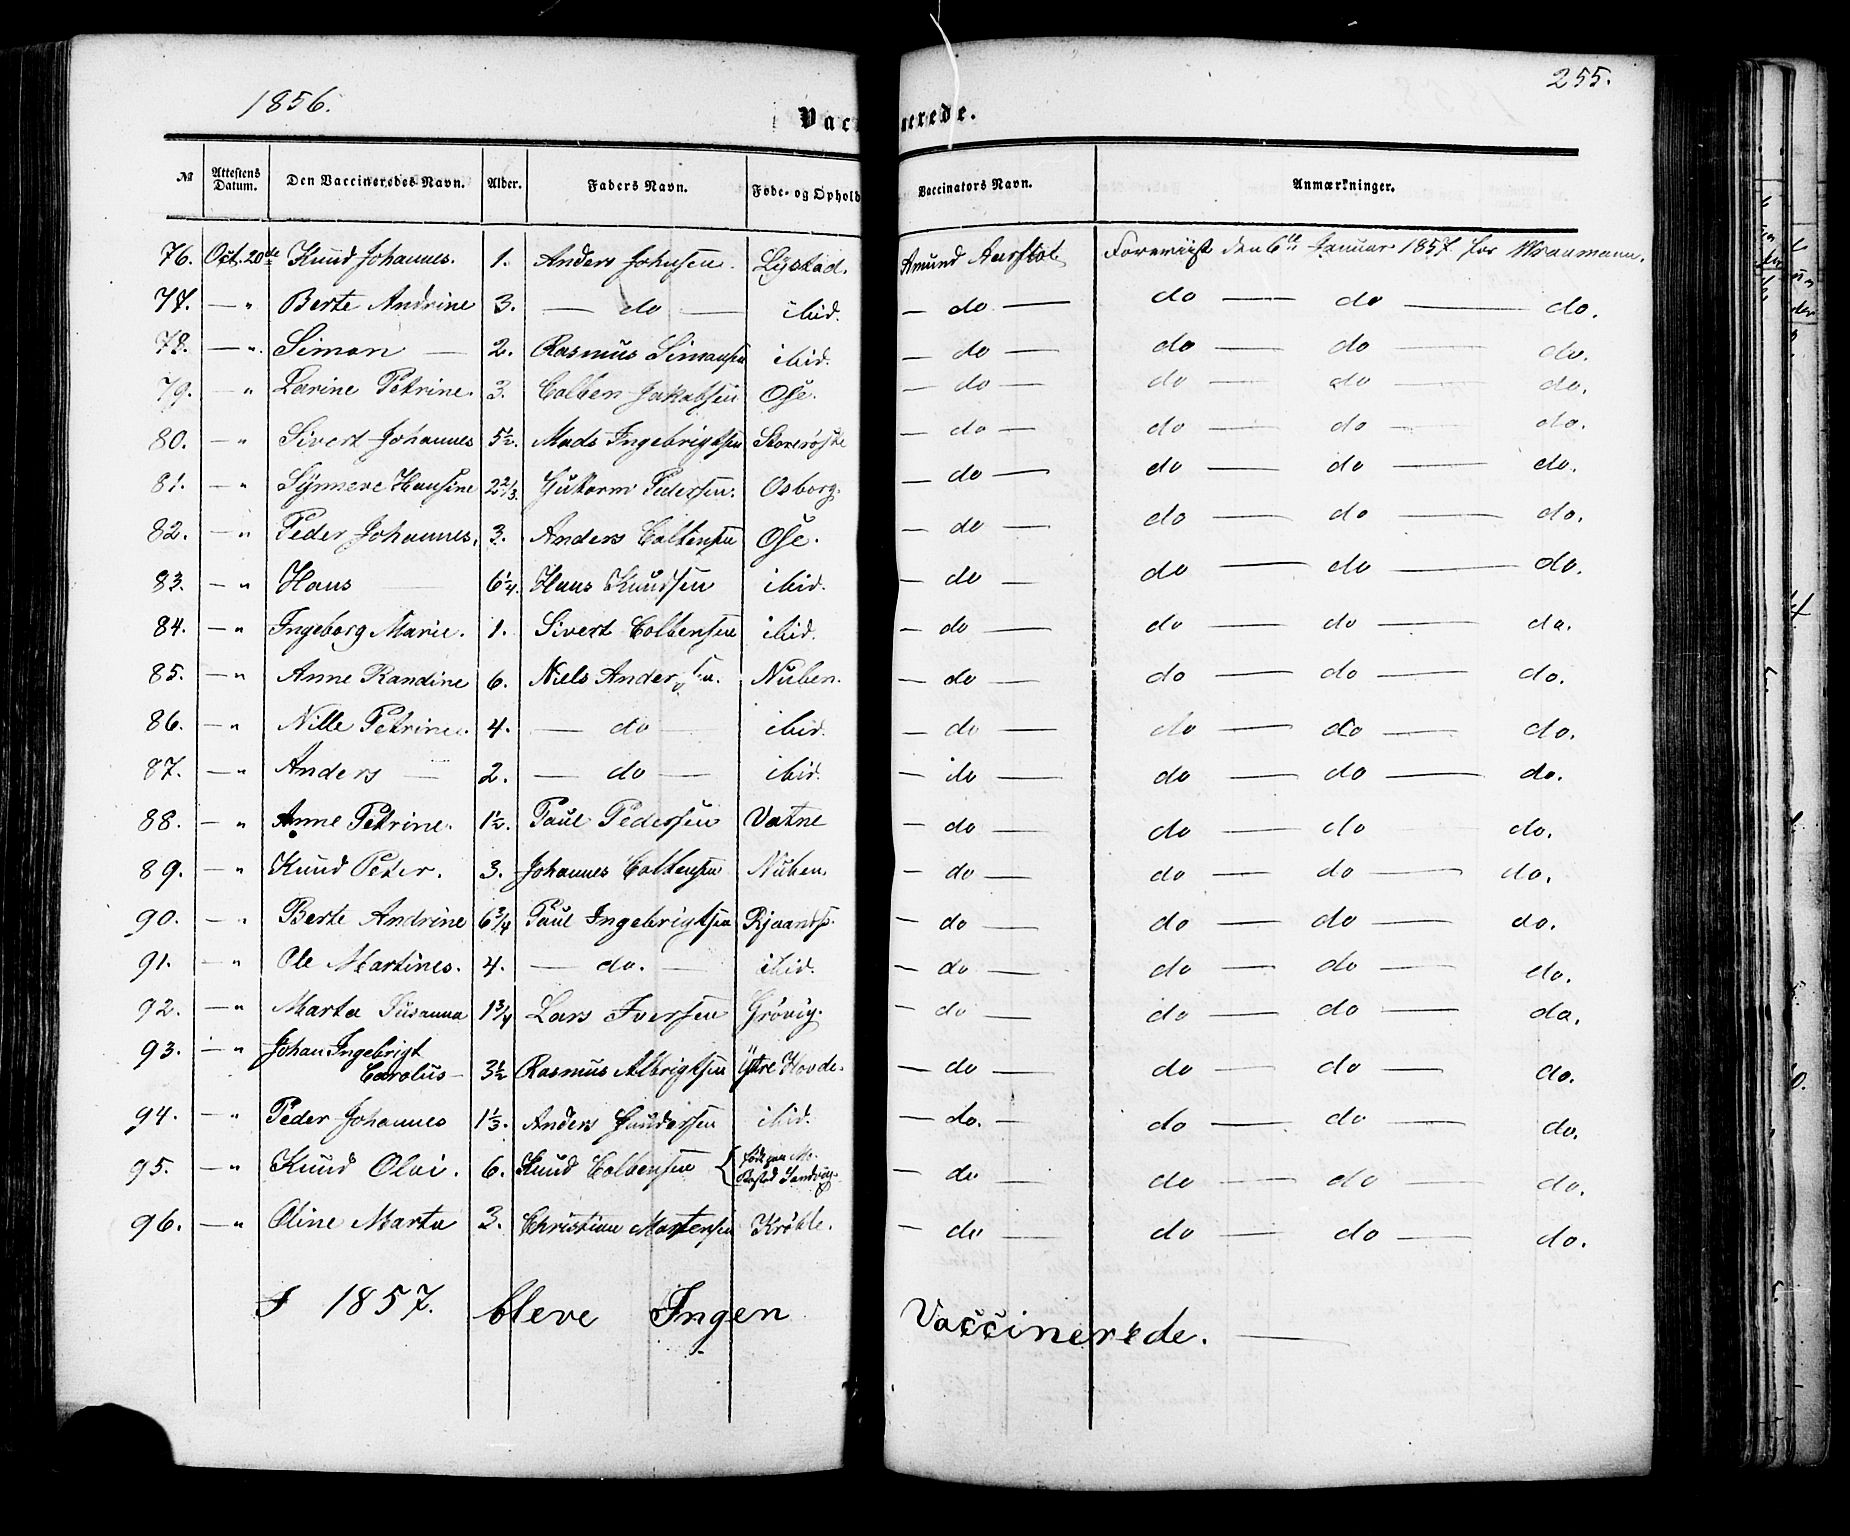 1856.
255.
Vaccinerede.
№ Attestens Datum. Den Vaccineredes Navn. Alder. Faders Navn. Føde- og Ophold Vaccinators Navn. Anmærkninger.
76. Oct. 20de Knud Johannes. 1. Anders Johnsen. Lystad. Amund Aurstol Foreviist den 6te Januar 1857 for
77. — " Berte Andrine 3. — do — ibid. — do — do — do — do.
78. — " Simon — 2. Rasmus Simonsen ibid. — do — do — do — do.
79. — " Larine Petrine. 3. Colben Jakobsen Ose. — do — do — do — do.
80. — " Sivert Johannes 5½. Mads Ingebrigtsen Storerøste — do — do — do — do.
81. — " Synneve Hansine 2 2/3. Gutorm Pedersen. Osborg. — do — do — do — do.
82. — " Peder Johannes. 3. Anders Colbensen Ose. — do — do — do — do.
83. — " Hans — 6¼. Hans Knudsen ibid. — do — do — do — do.
84. — " Ingeborg Marie. 1. Sivert Colbensen ibid. — do — do — do — do.
85. — " Anne Randine 6. Niels Andersen. Nuben. — do — do — do — do.
86. — " Nille Petrine. 4. — do — ibid. — do — do — do — do.
87. — " Anders — 2. — do — ibid. — do — do — do — do.
88. — " Anne Petrine. 1½. Paul Pedersen Vatne — do — do — do — do.
89. — " Knud Peter. 3. Johannes Colbensen Nuben. — do — do — do — do.
90. — " Berte Andrine 6¾ Paul Ingebrigtsen — do — do — do — do.
91. — " Ole Martines. 4. — do. — ibid. — do — do — do — do.
92. — " Marta Susanna 1¾ Lars Iversen Grøvig. — do — do — do — do.
93. — " Johan Ingebrigt
Carolus — 3½ Rasmus Albrigtsen Ytre Hovde. — do — do — do — do.
94. — " Peder Johannes 1⅓. Anders Gundersen ibid. — do. — do — do — do.
95. — " Knud Olai. 6. Knud Colbensen { født paa Mo.
Bosted Sandvig. — do — do — do — do.
96. — " Oline Marta 3. Christian Mortensen Krøvle. — do — do — do — do.
I 1857. bleve Ingen Vaccinerede. —